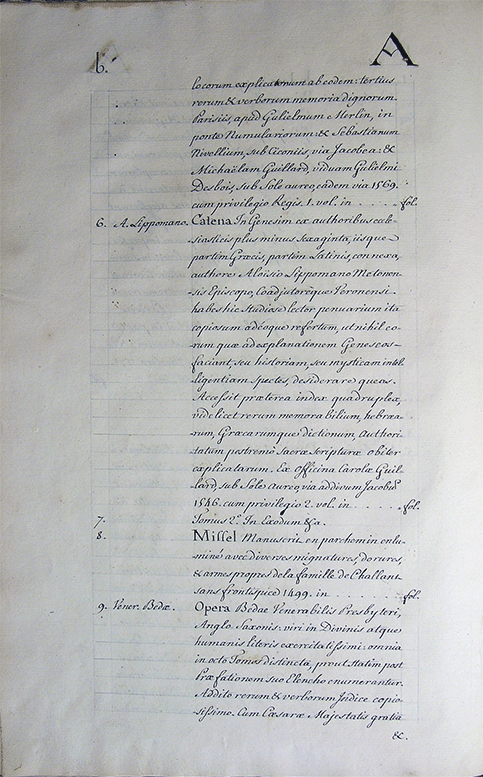 6.
A
locorum explicatorum ab eodem: tertius
rerum & verborum memoria dignorum.
Parisiis, apud Gulielmum Merlin, in
ponte Numulariorum: & Sebastianum
Nivellium, sub Ciconiis, via Jacobea: &
Michaëlam Guillard, viduam Gulielmi
Desbois, sub Sole aureo, eadem via 1569.
cum privilegio Regis. 1. vol. in . . . . . fol.
6. A. Lippomano. Catena In Genesim ex authoribus eccle-
siasticis plus minus sexaginta, iisque
partim Græcis, partim Latinis, connexa,
authore Aloisio Lippomano Motonen-
sis Episcopo, Coadjutoreque Veronensi
habes hic studiose lector penuarium ita
copiosum adéoque refertum, ut nihil eo-
rum quæ ad explanationem Geneseos
faciant, seu historiam, seu mysticam intel-
ligentiam spectes, desiderare queas.
Accessit præterea index quadruplex,
videlicet rerum memorabilium, hebræa-
rum, Græcarumque dictionum, Authori-
tatum postremò Sacræ Scripturæ obiter
explicatarum. Ex Officina Carolæ Guil-
lard, sub Sole Aureo, via ad divum Jacobũ
1546. cum privilegio 2. vol. in . . . . . fol.
7. Tomus 2.us In Exodum &a.
8. Missel Manuscrit en parchemin enlu-
miné avec diverses mignatures, dorures,
& armes propres de la famille de Challant
sans frontispice 1499. in . . . . . fol.
9. Vener. Bedæ. Opera Bedae Venerabilis Presbyteri,
Anglo Saxonis: viri in Divinis atque
humanis literis exercitatissimi: omnia
in octo Tomos distincta, prout statim post
Præfationem suo Elencho enumerantur.
Addito rerum & verborum Indice copio-
sissimo. Cum Cæsaræ Majestatis gratia
&.